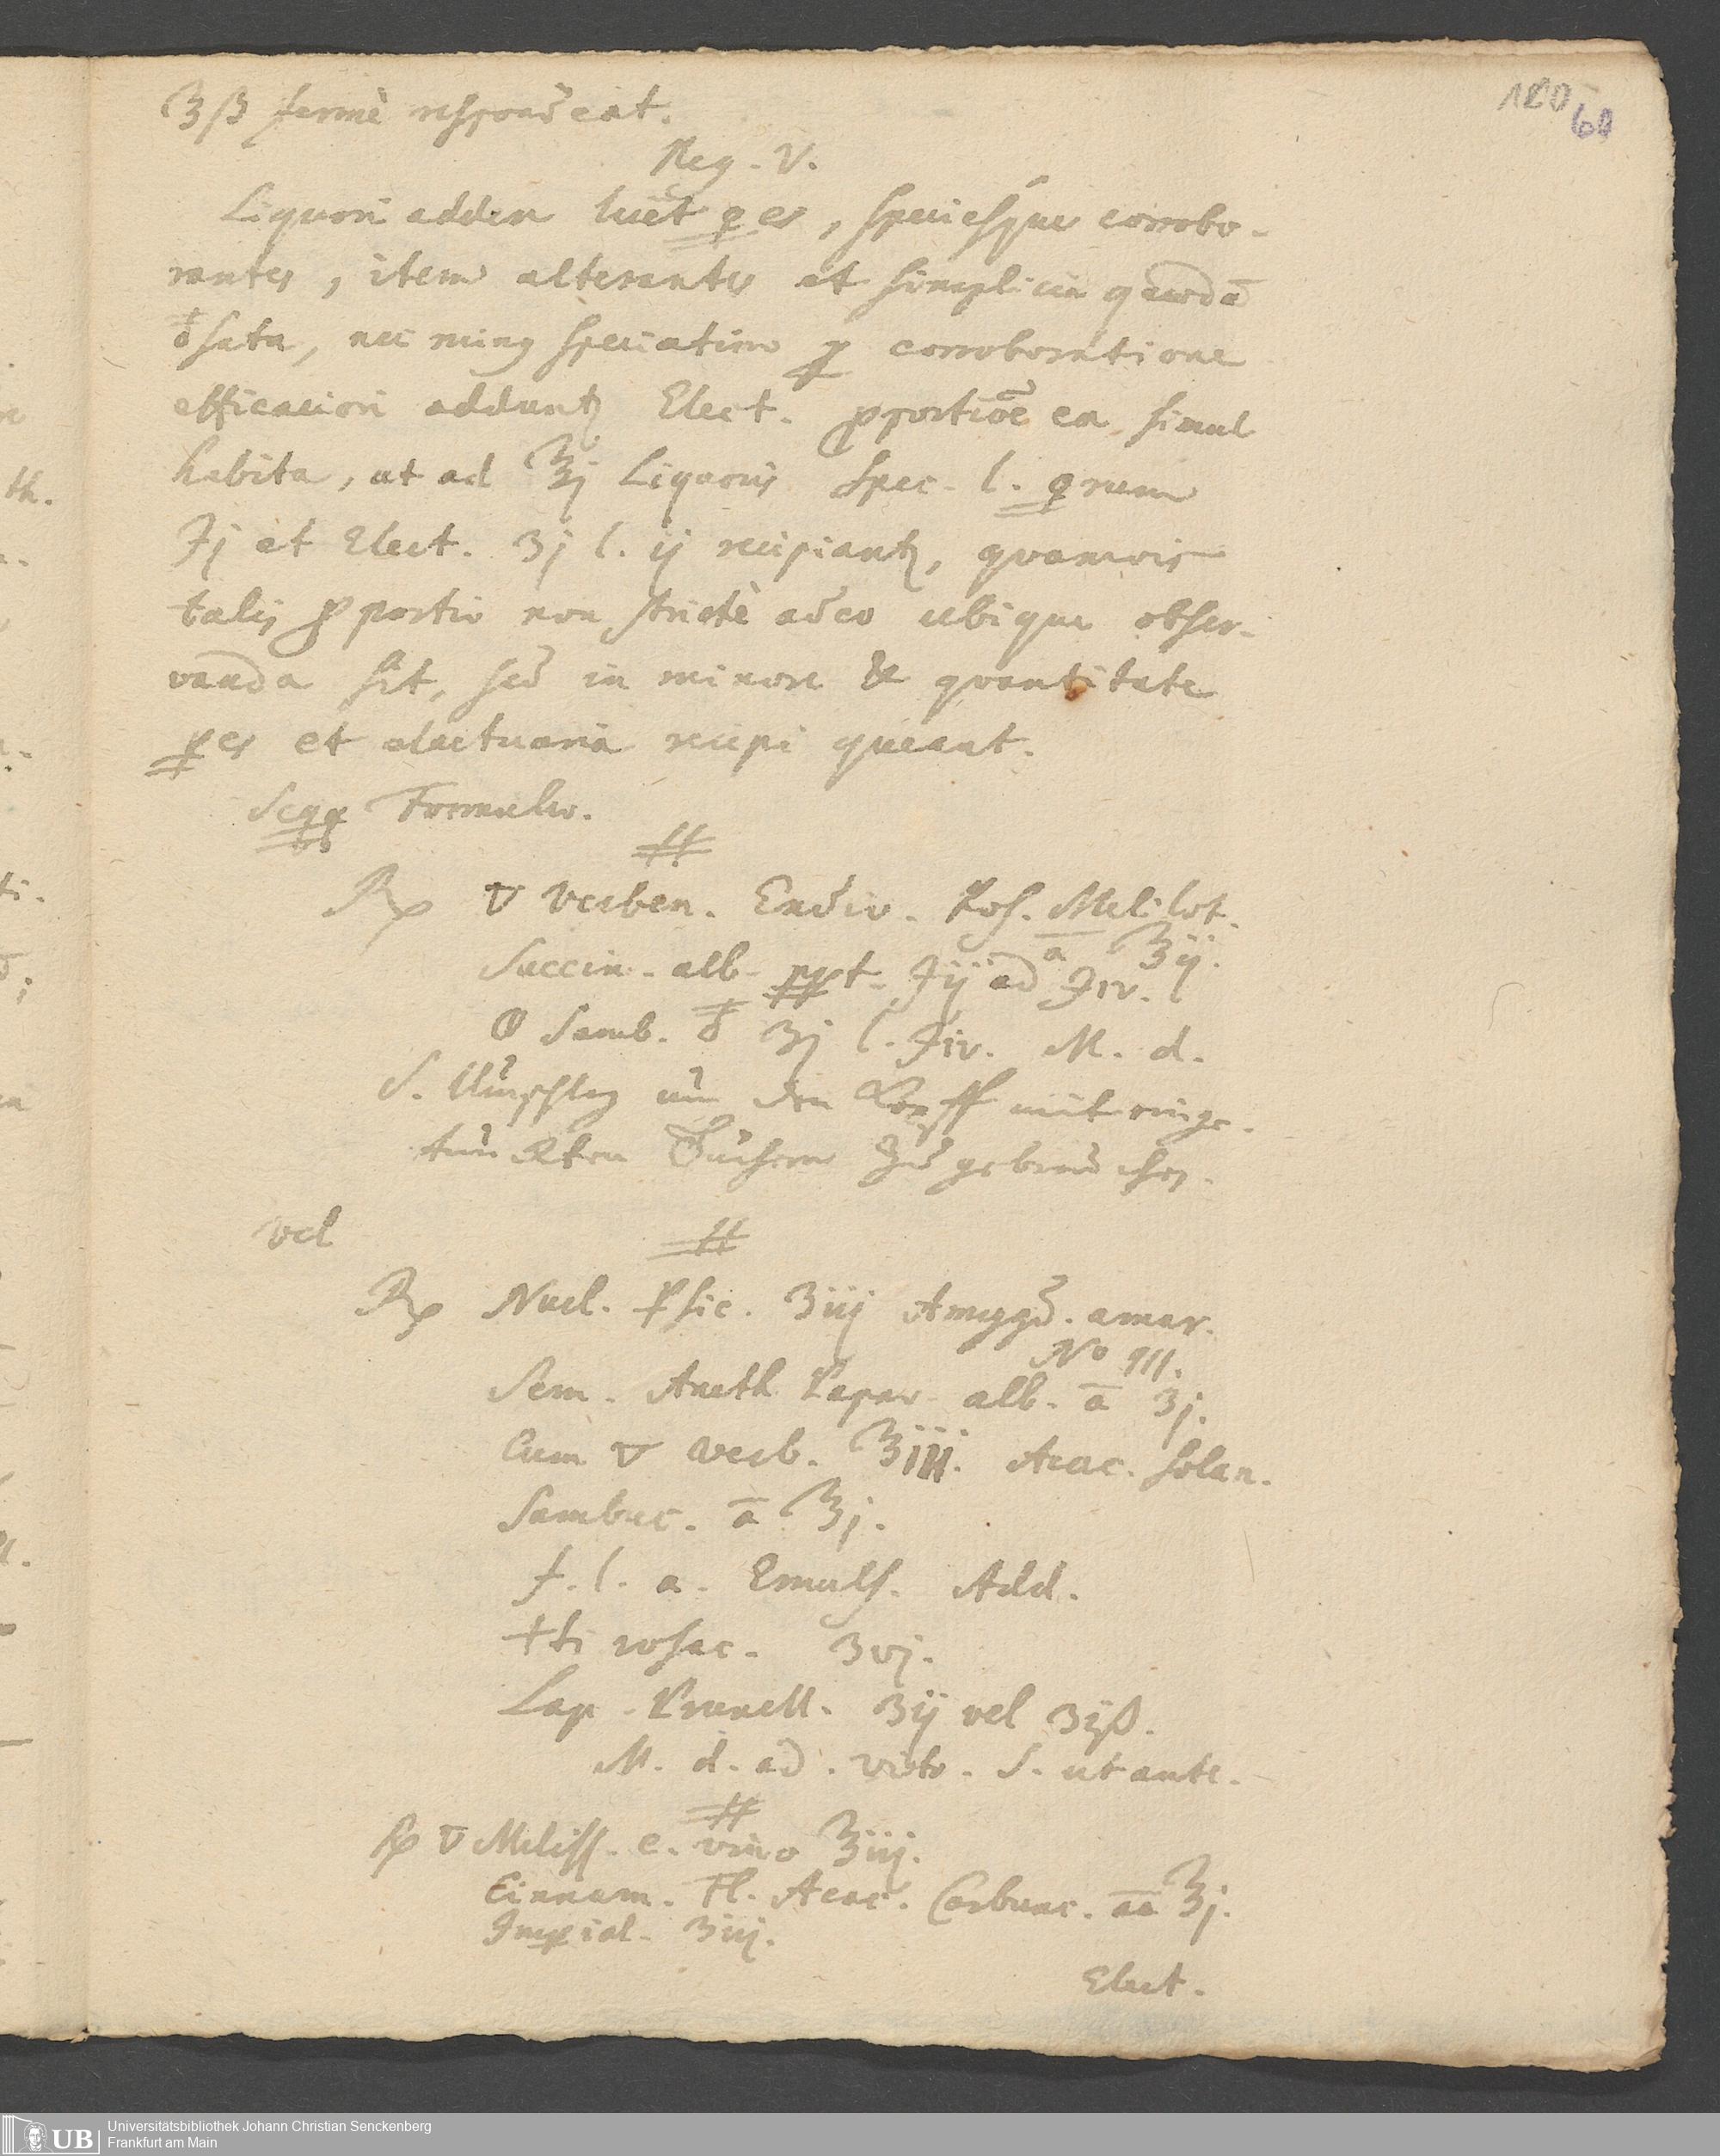 180
60
℥ß fermè respondeat.
Reg. V.
Liquori addere licet pes, speciesque corrobo-
rantes, item alterantes et simplicia quaedā
āsata, nec minus speciatim p corroboratione
efficaciori adduntꝫ Elect. ꝓportiōe ea simul
habita, ut ad ℥j Liquoris Spec. l. prum
℈j et Elect. ʒj l. ij recipiantꝫ, quamvis
talis ꝓportio non strictè adeo ubique obser-
vanda sit, sed in minore & quantitate
pes et electuaria recipi queant.
Seqq Formulae.
#
℞ ▽ Verben. Endiv. Ros. Melilot.
ā ℥ij.
Succin. alb. ppt. ℈ij ad ℈iv.
Samb. ʒj l. ℈iv. M. d.
S. Umschlag um den Kopff mit einge-
tunckten Tüchern zu gebrauchen.
vel
#
℞ Nucl. Psic. ʒiij Amygd. amar.
No III.
Sem. Aneth Papav. alb. ā ʒj.
Cum ▽ Verb. ℥iii. Acac. Solan.
Sambuc. ā ℥j.
f. l. a. Emuls. Add.
+ti rosac. ʒvj.
Lap. Prunell. ʒij vel ʒijß.
M. d. ad. vitr. S. ut ante.
#
℞ ▽ Meliss. c. vino ℥iij.
Cinnam. Fl. Acac. Carbunc. aa ℥j.
Impial. ʒiij.
Elect.
UB
Universitätsbibliothek Johann Christian Senckenberg
Frankfurt am Main